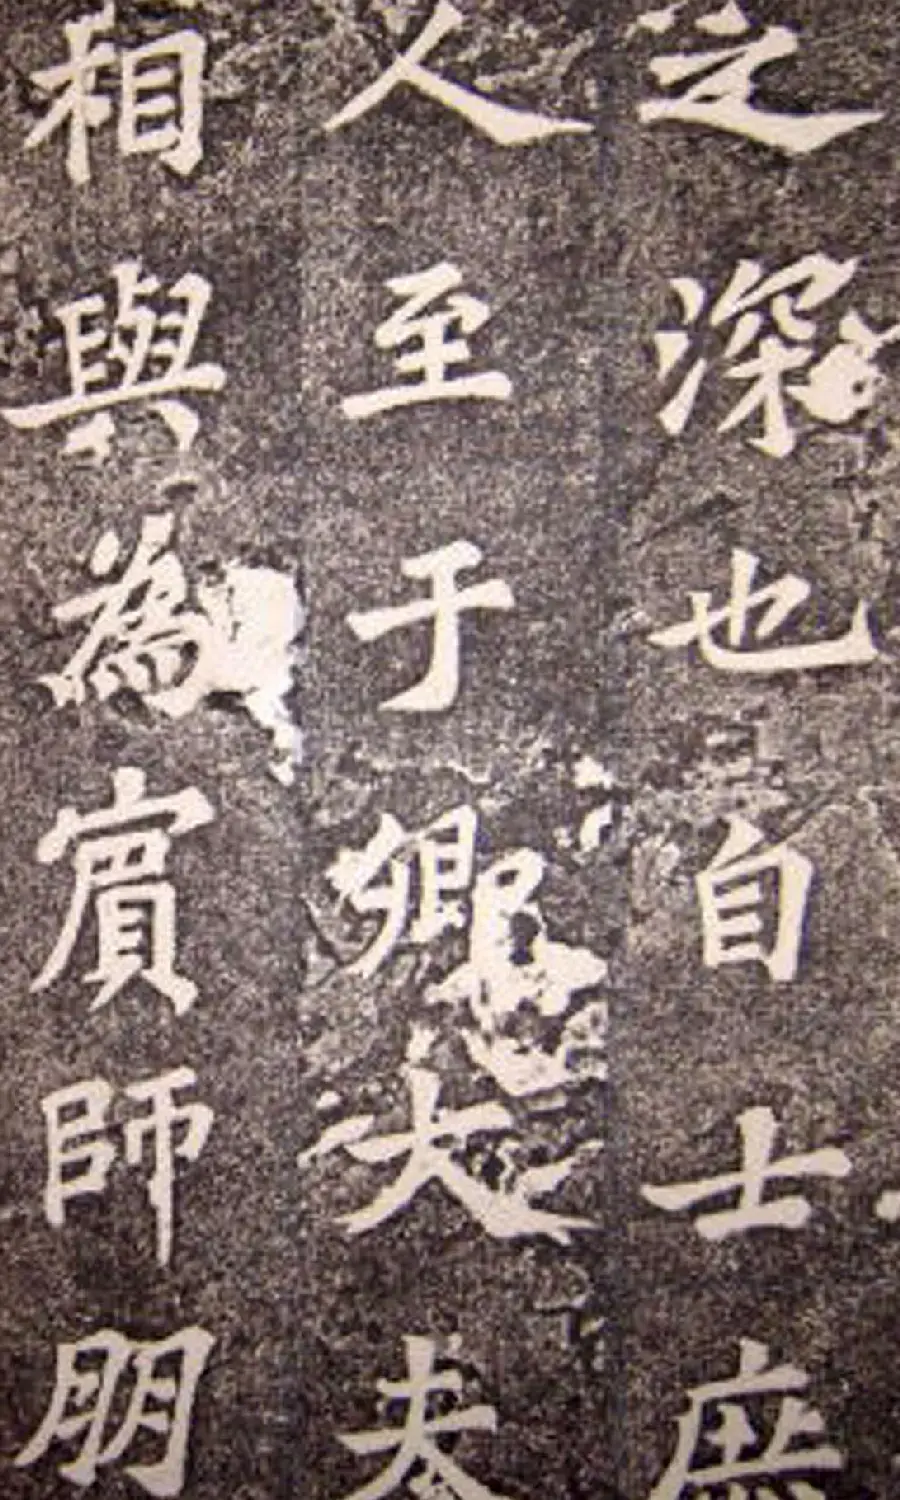 之深也自士庶
人至于卿大夫
相與為賓師朋